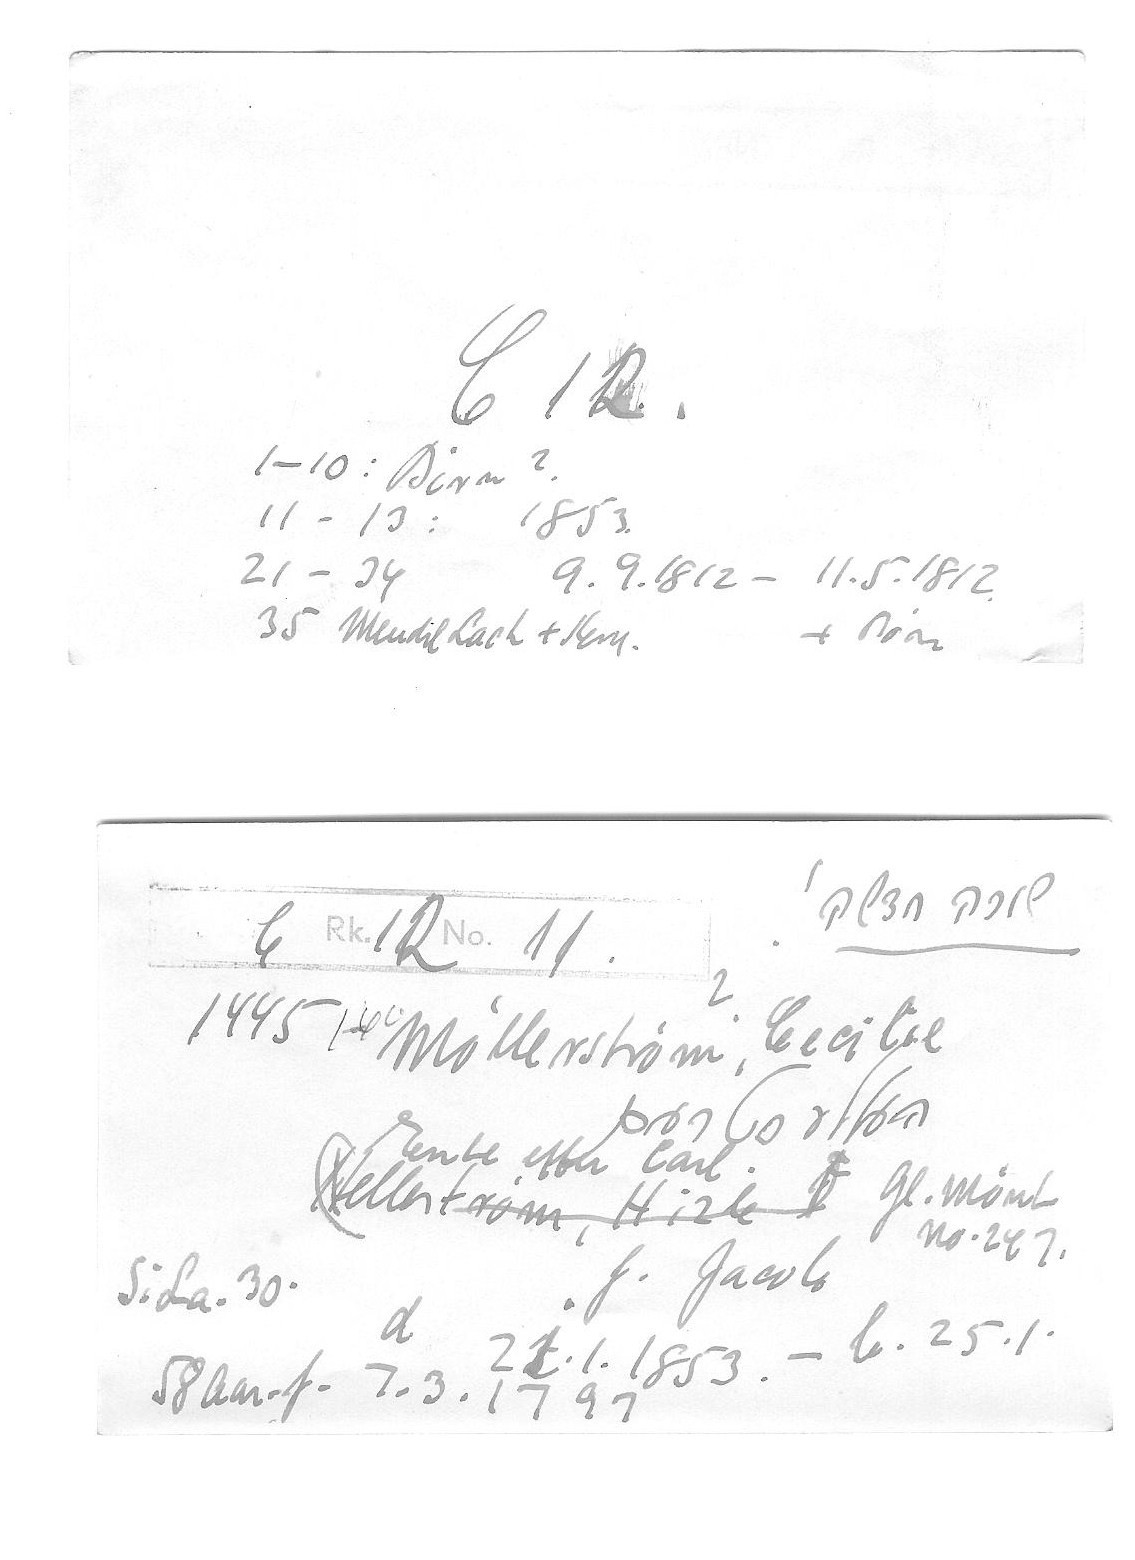 C 12.
1-10: Börn ?.
11-13: 1853.
21-34 9.9.1812 - 11.5.1812
35 Mendel Lach + + Börn
שורה חדשה
C Rk. 12 No. 11.
1445 Möllerström, Cecilie
?
Enke efter Carl.
(Hellerström, Hizle Gl. Mönt
No. 247.
f. Jacob
Sida. 30.
d 21.1.1853. - b. 25.1.
58 Aar. f. 7.3.1797